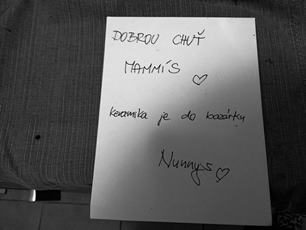 DOBROU CHUŤ
MAMMÍS
keramika je do bazárku
Nunnys